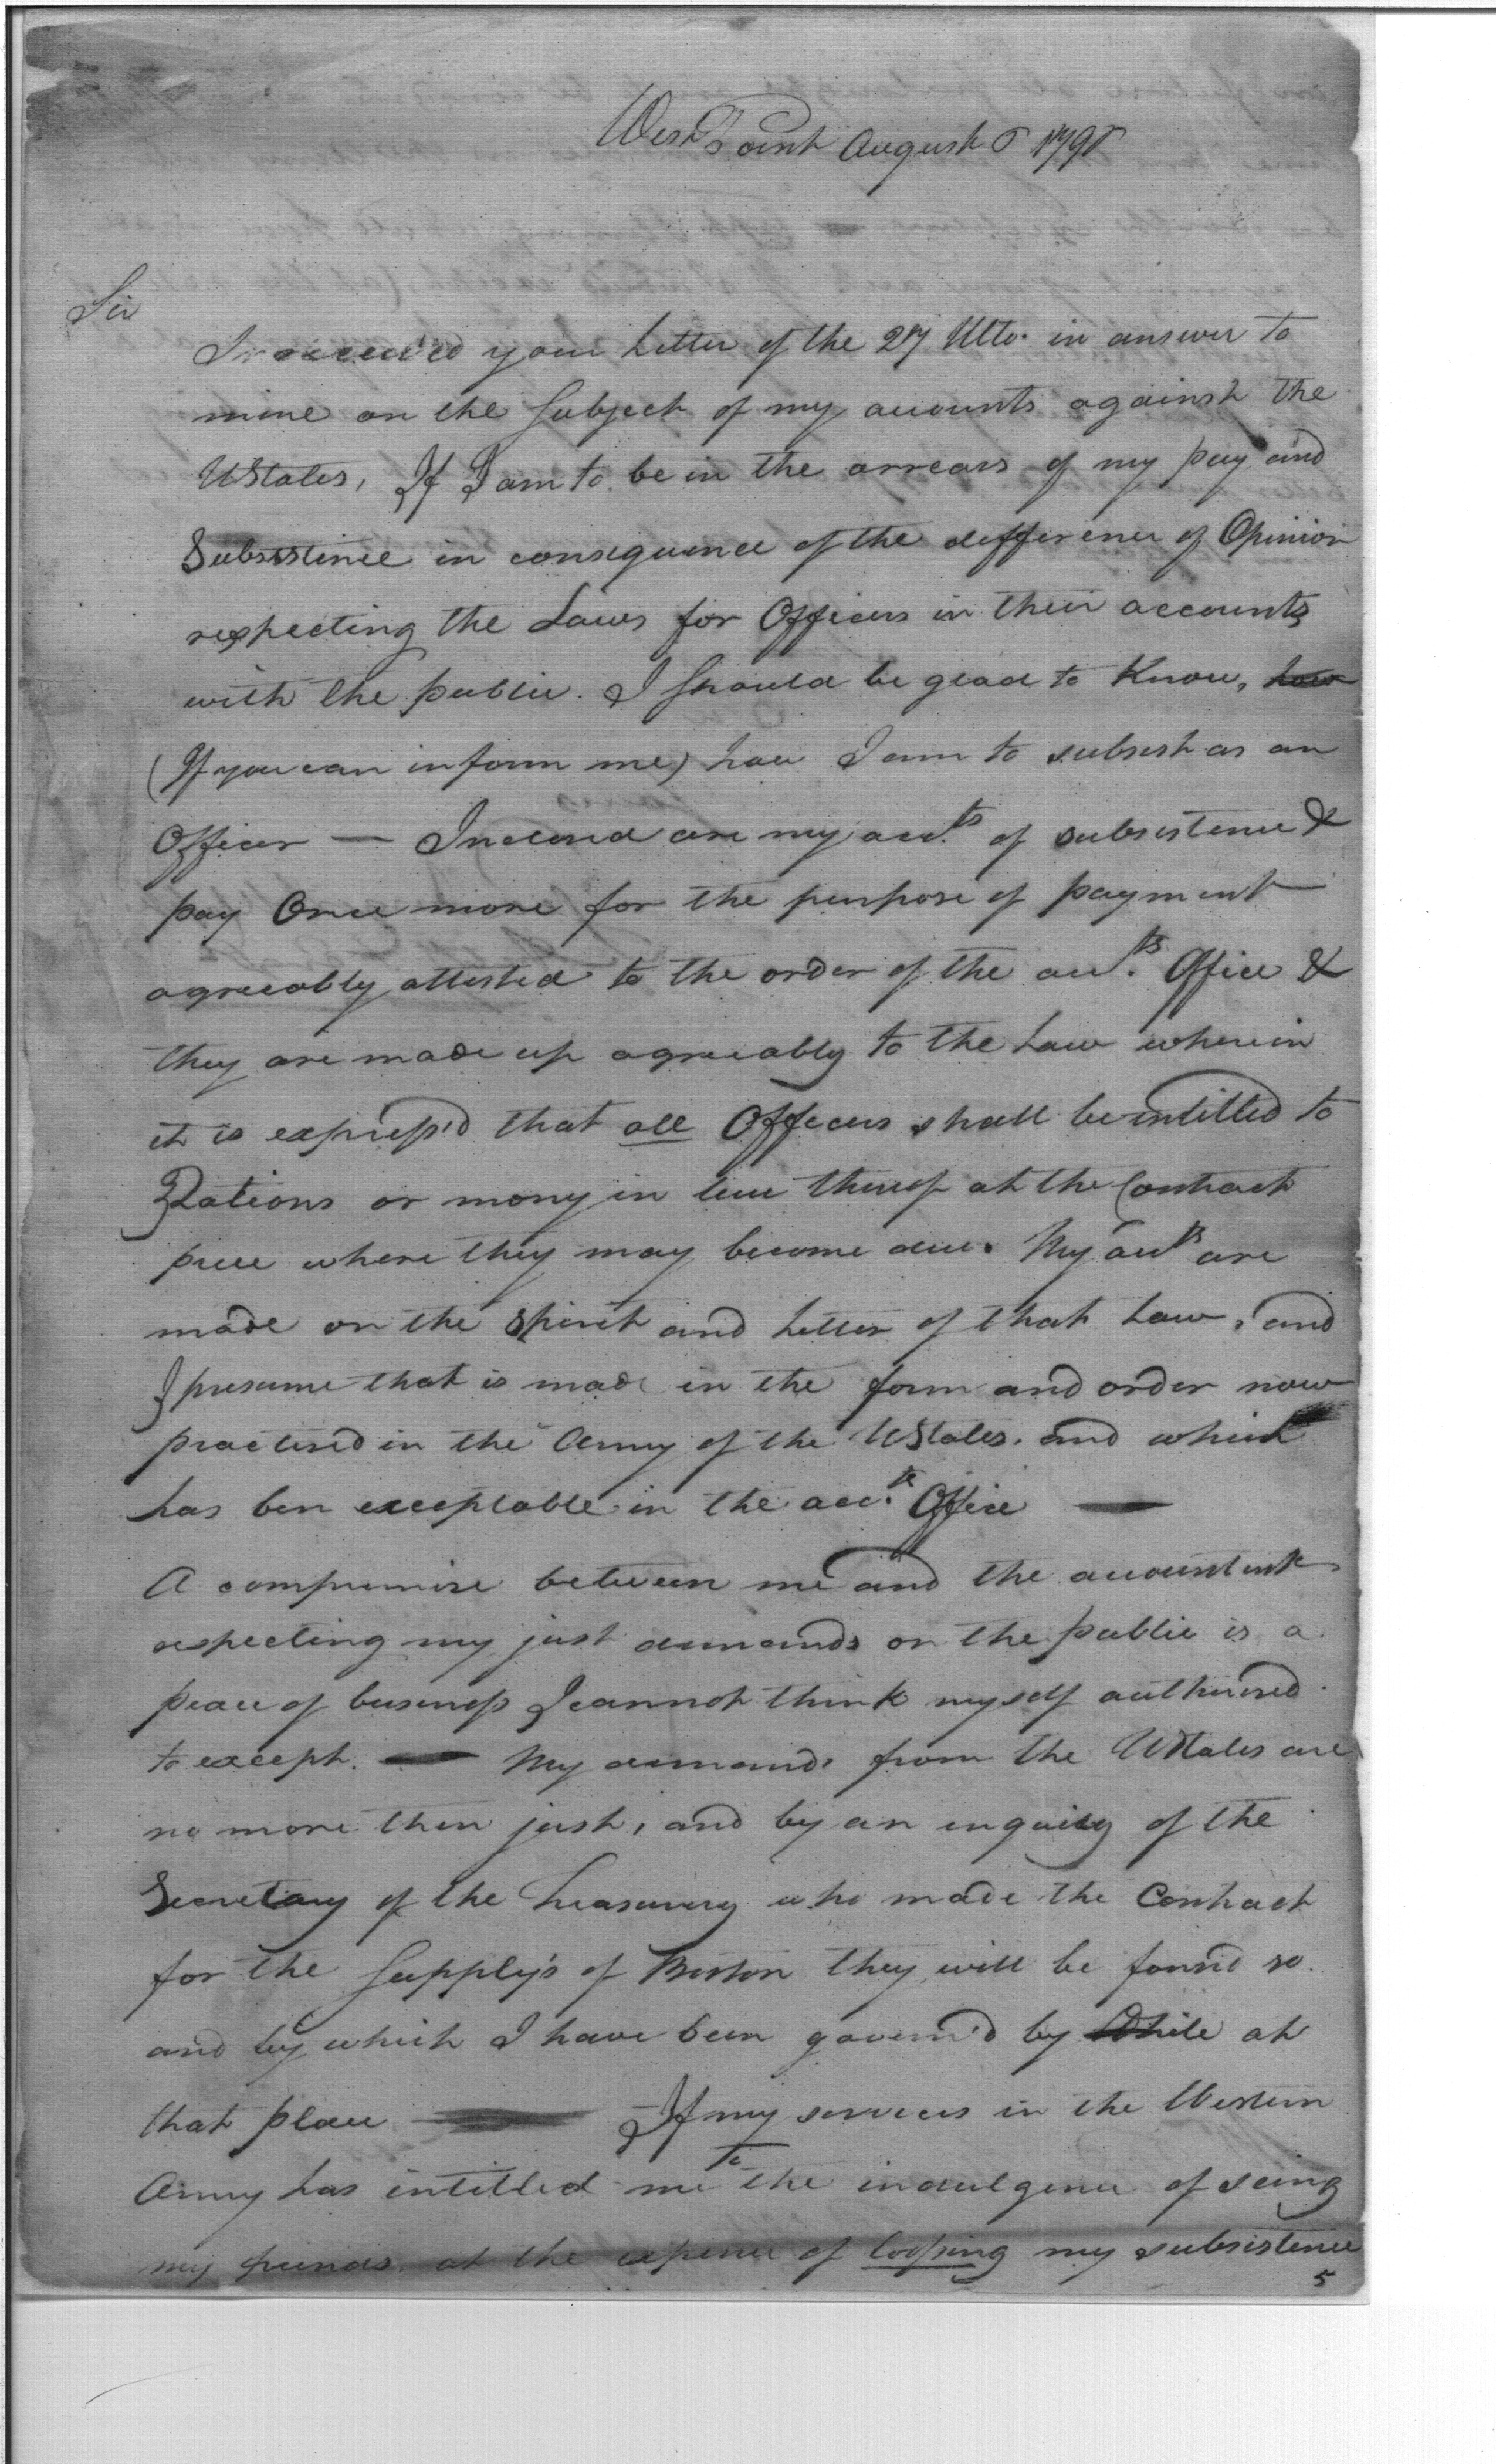 West Point August 6 1795
Sir
I received your Letter of the 27 Ulto. in answer to
mine on the Subject of my accounts against the
UStates, If I am to be in the arrears of my pay and
Subsistince in consequence of the difference of Opinion
respecting the Laws for Officers in their accounts
with the public. I should be glad to Know, how
(If you can inform me) how I am to subsist as an
Officer — Inclosed are my accts. of subsistence &
pay Once more for the purpose of payment
agreeably attested to the order of the accts. Office &
they are made up agreeably to the Law wherein
it is express'd that all Officers shall be intitled to
Rations or mony in lieu thereof at the Contract
price where they may become due. My accts are
made on the Spirit and Letter of that Law, and
I presume that is made in the form and order now
practised in the Army of the UStates. and which
has ben exceptable in the acc.ts Office —
A compromise between me and the accountant
respecting my just demands on the public is a
peace of business I cannot think myself authorised
to except. — My demands from the UStates are
no more then just, and by an inquiry of the
Secretary of the Treasurery who made the Contract
for the Supply's of Boston they will be found so.
and by which I have been govern'd by While at
that place — If my services in the Western
Army has intitled me to the indulgence of seing
my friends at the expence of loosing my subsistence
5